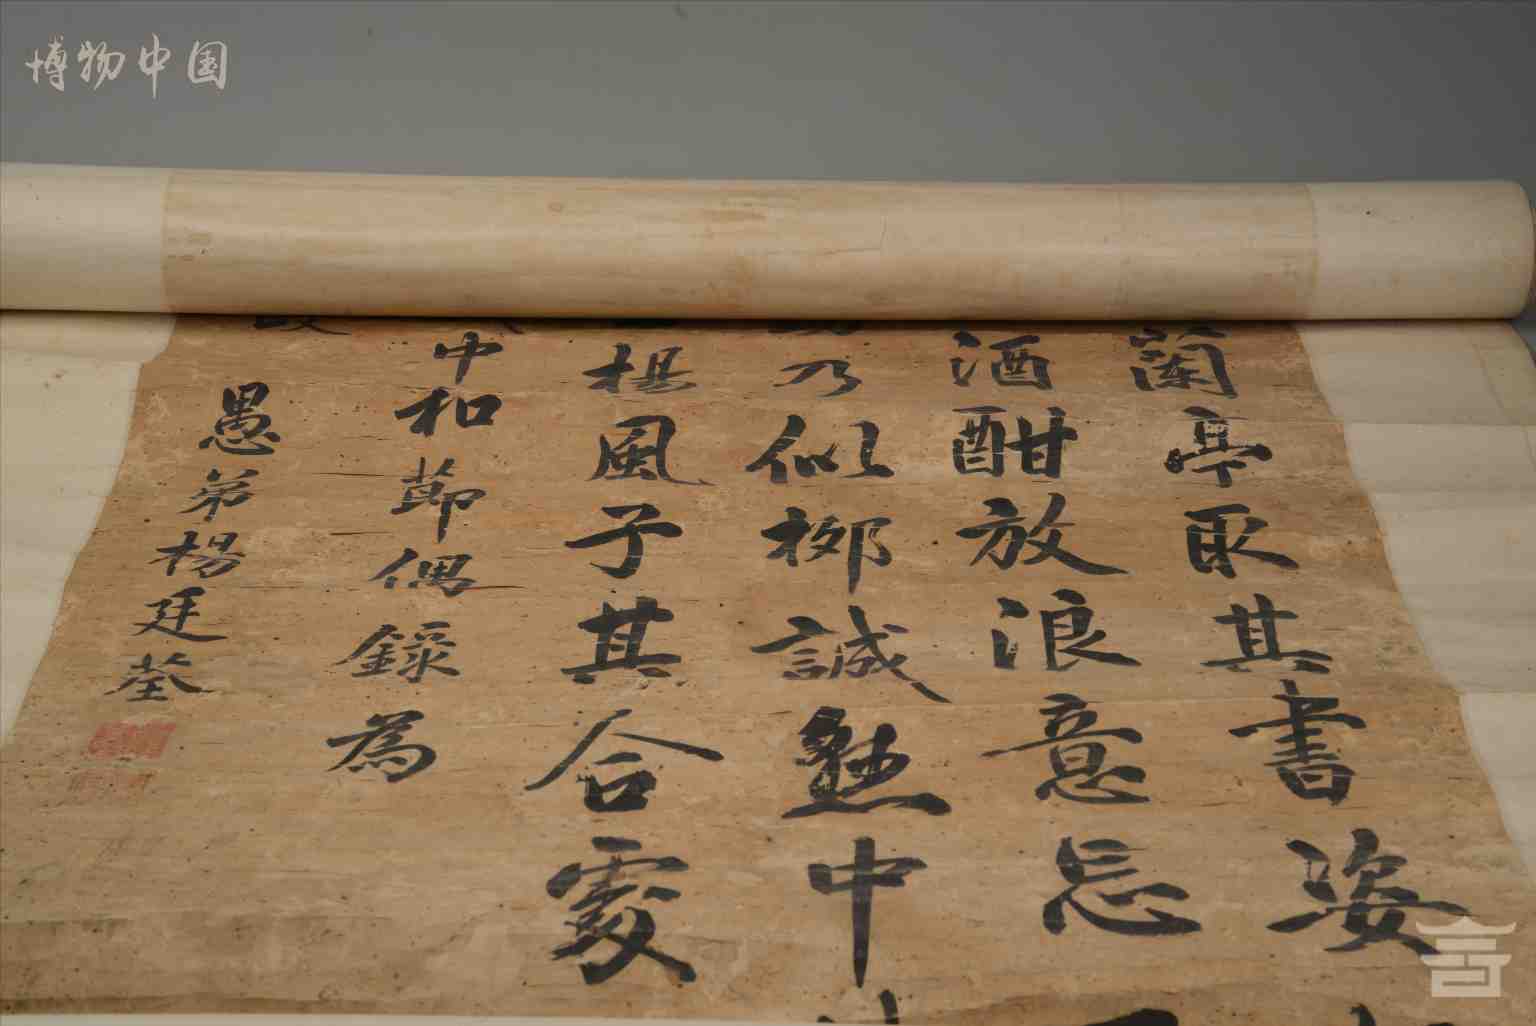 博物中国
蘭亭取其書姿
酒酣放浪意忘
乃似柳誠懸中
楊風子其合處
中和節偶錄為
愚弟楊廷荃